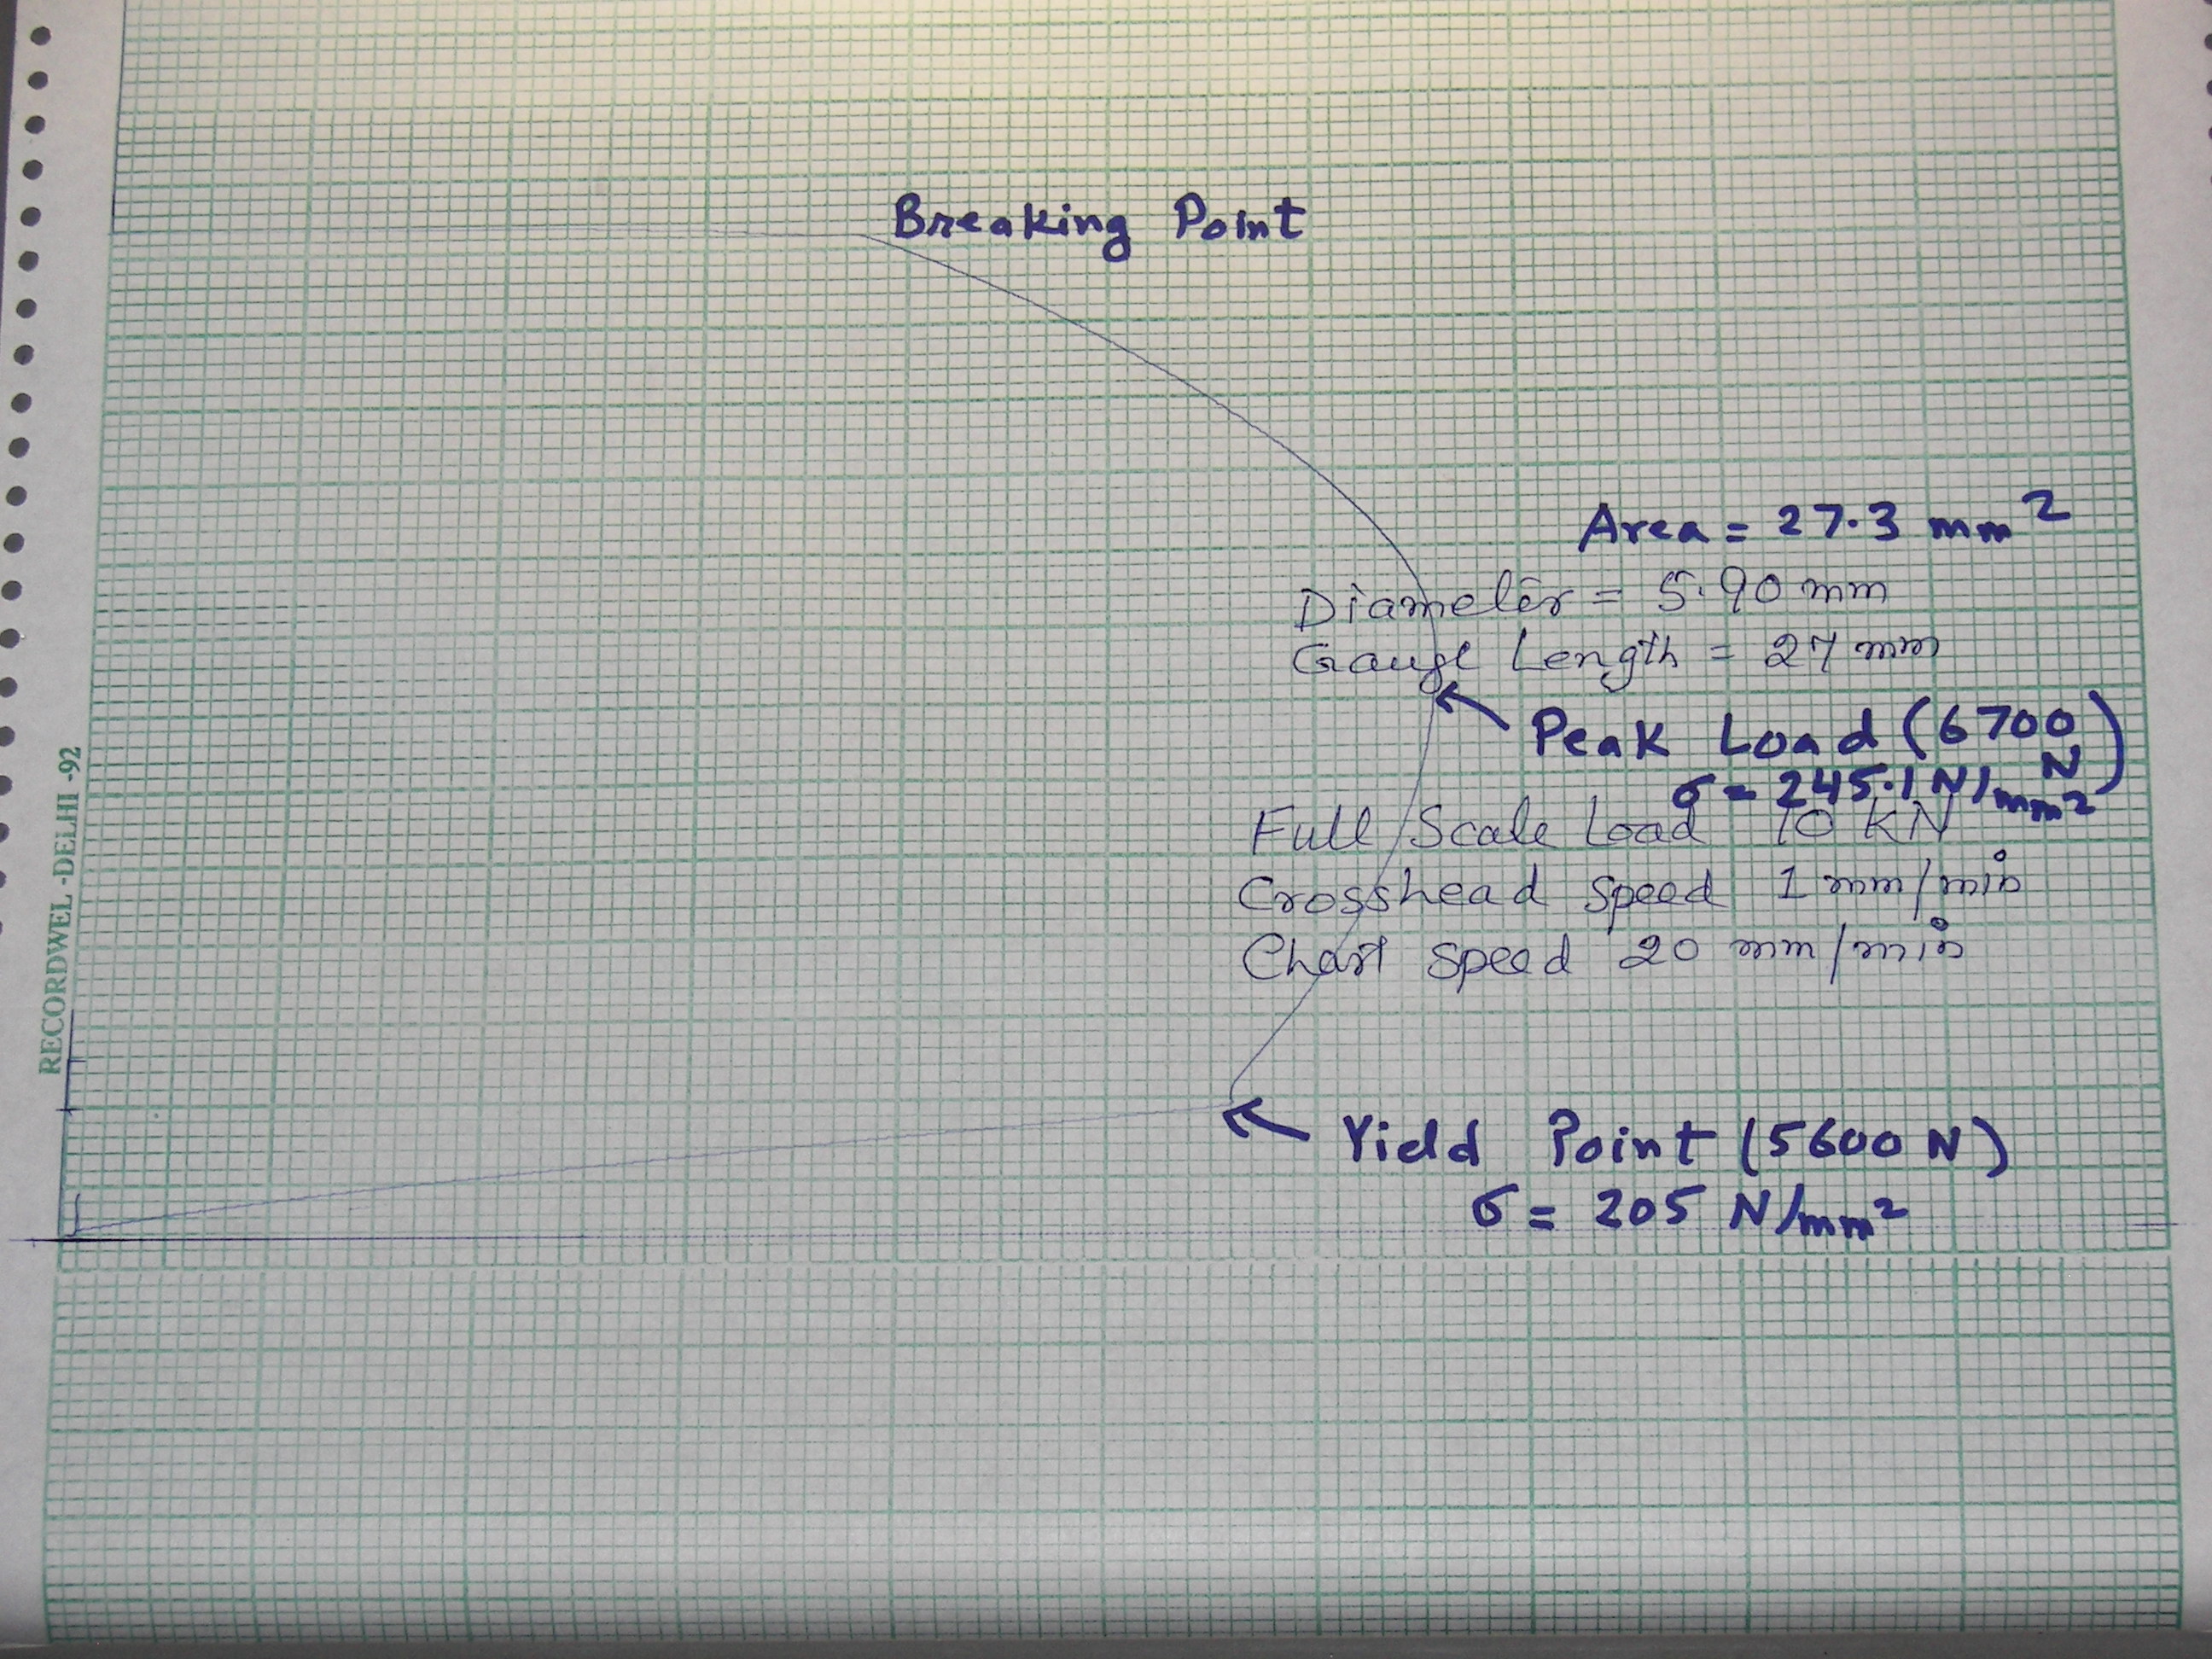 Breaking Point
Area = 27.3 mm²
Diameter = 5.90 mm
Gauge Length = 27 mm
Peak Load (6700 N)
σ = 245.1 N/mm²
Full Scale Load 10 KN
Crosshead Speed 1 mm/min
Chart Speed 20 mm/min
Yield Point (5600 N)
σ = 205 N/mm²
RECORDWEL -DELHI -92